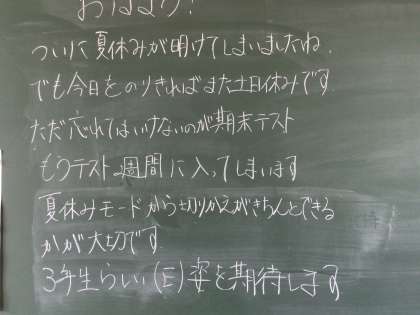 おはよう!
ついに夏休みが明けてしまいましたね。
でも今日をのりきればまた土日休みです
ただ忘れてはいけないのが期末テスト
もうテスト週間に入ってしまいます
夏休みモードから切りかえがきちんとできる
かが大切です
3年生らしい(E)姿を期待します